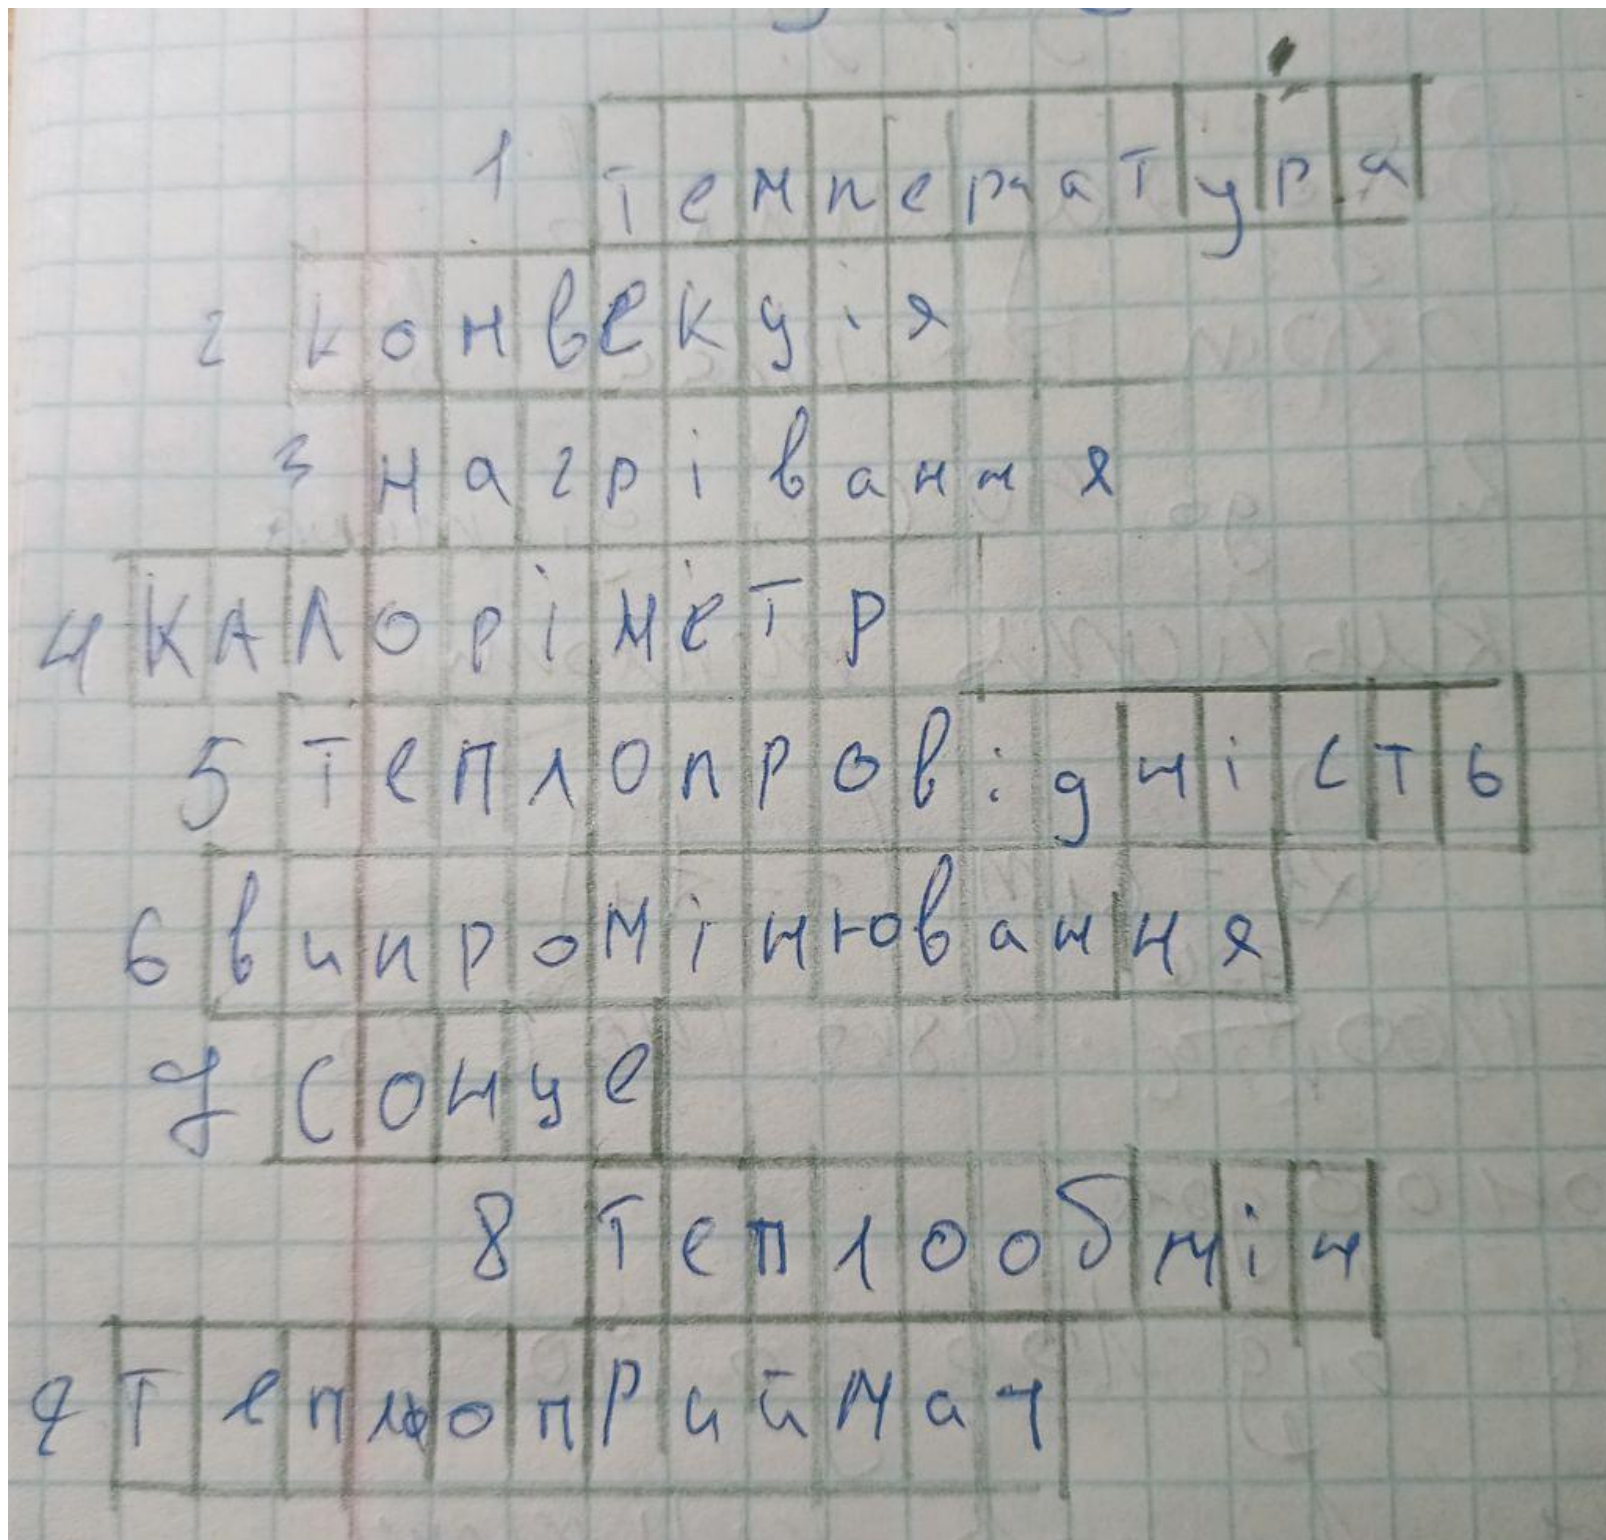 1 температура
2 конвекція
3 нагрівання
4 КАЛОріметр
5 теплопровідність
6 випромінювання
7 сонце
8 теплообмін
9 теплоприймач